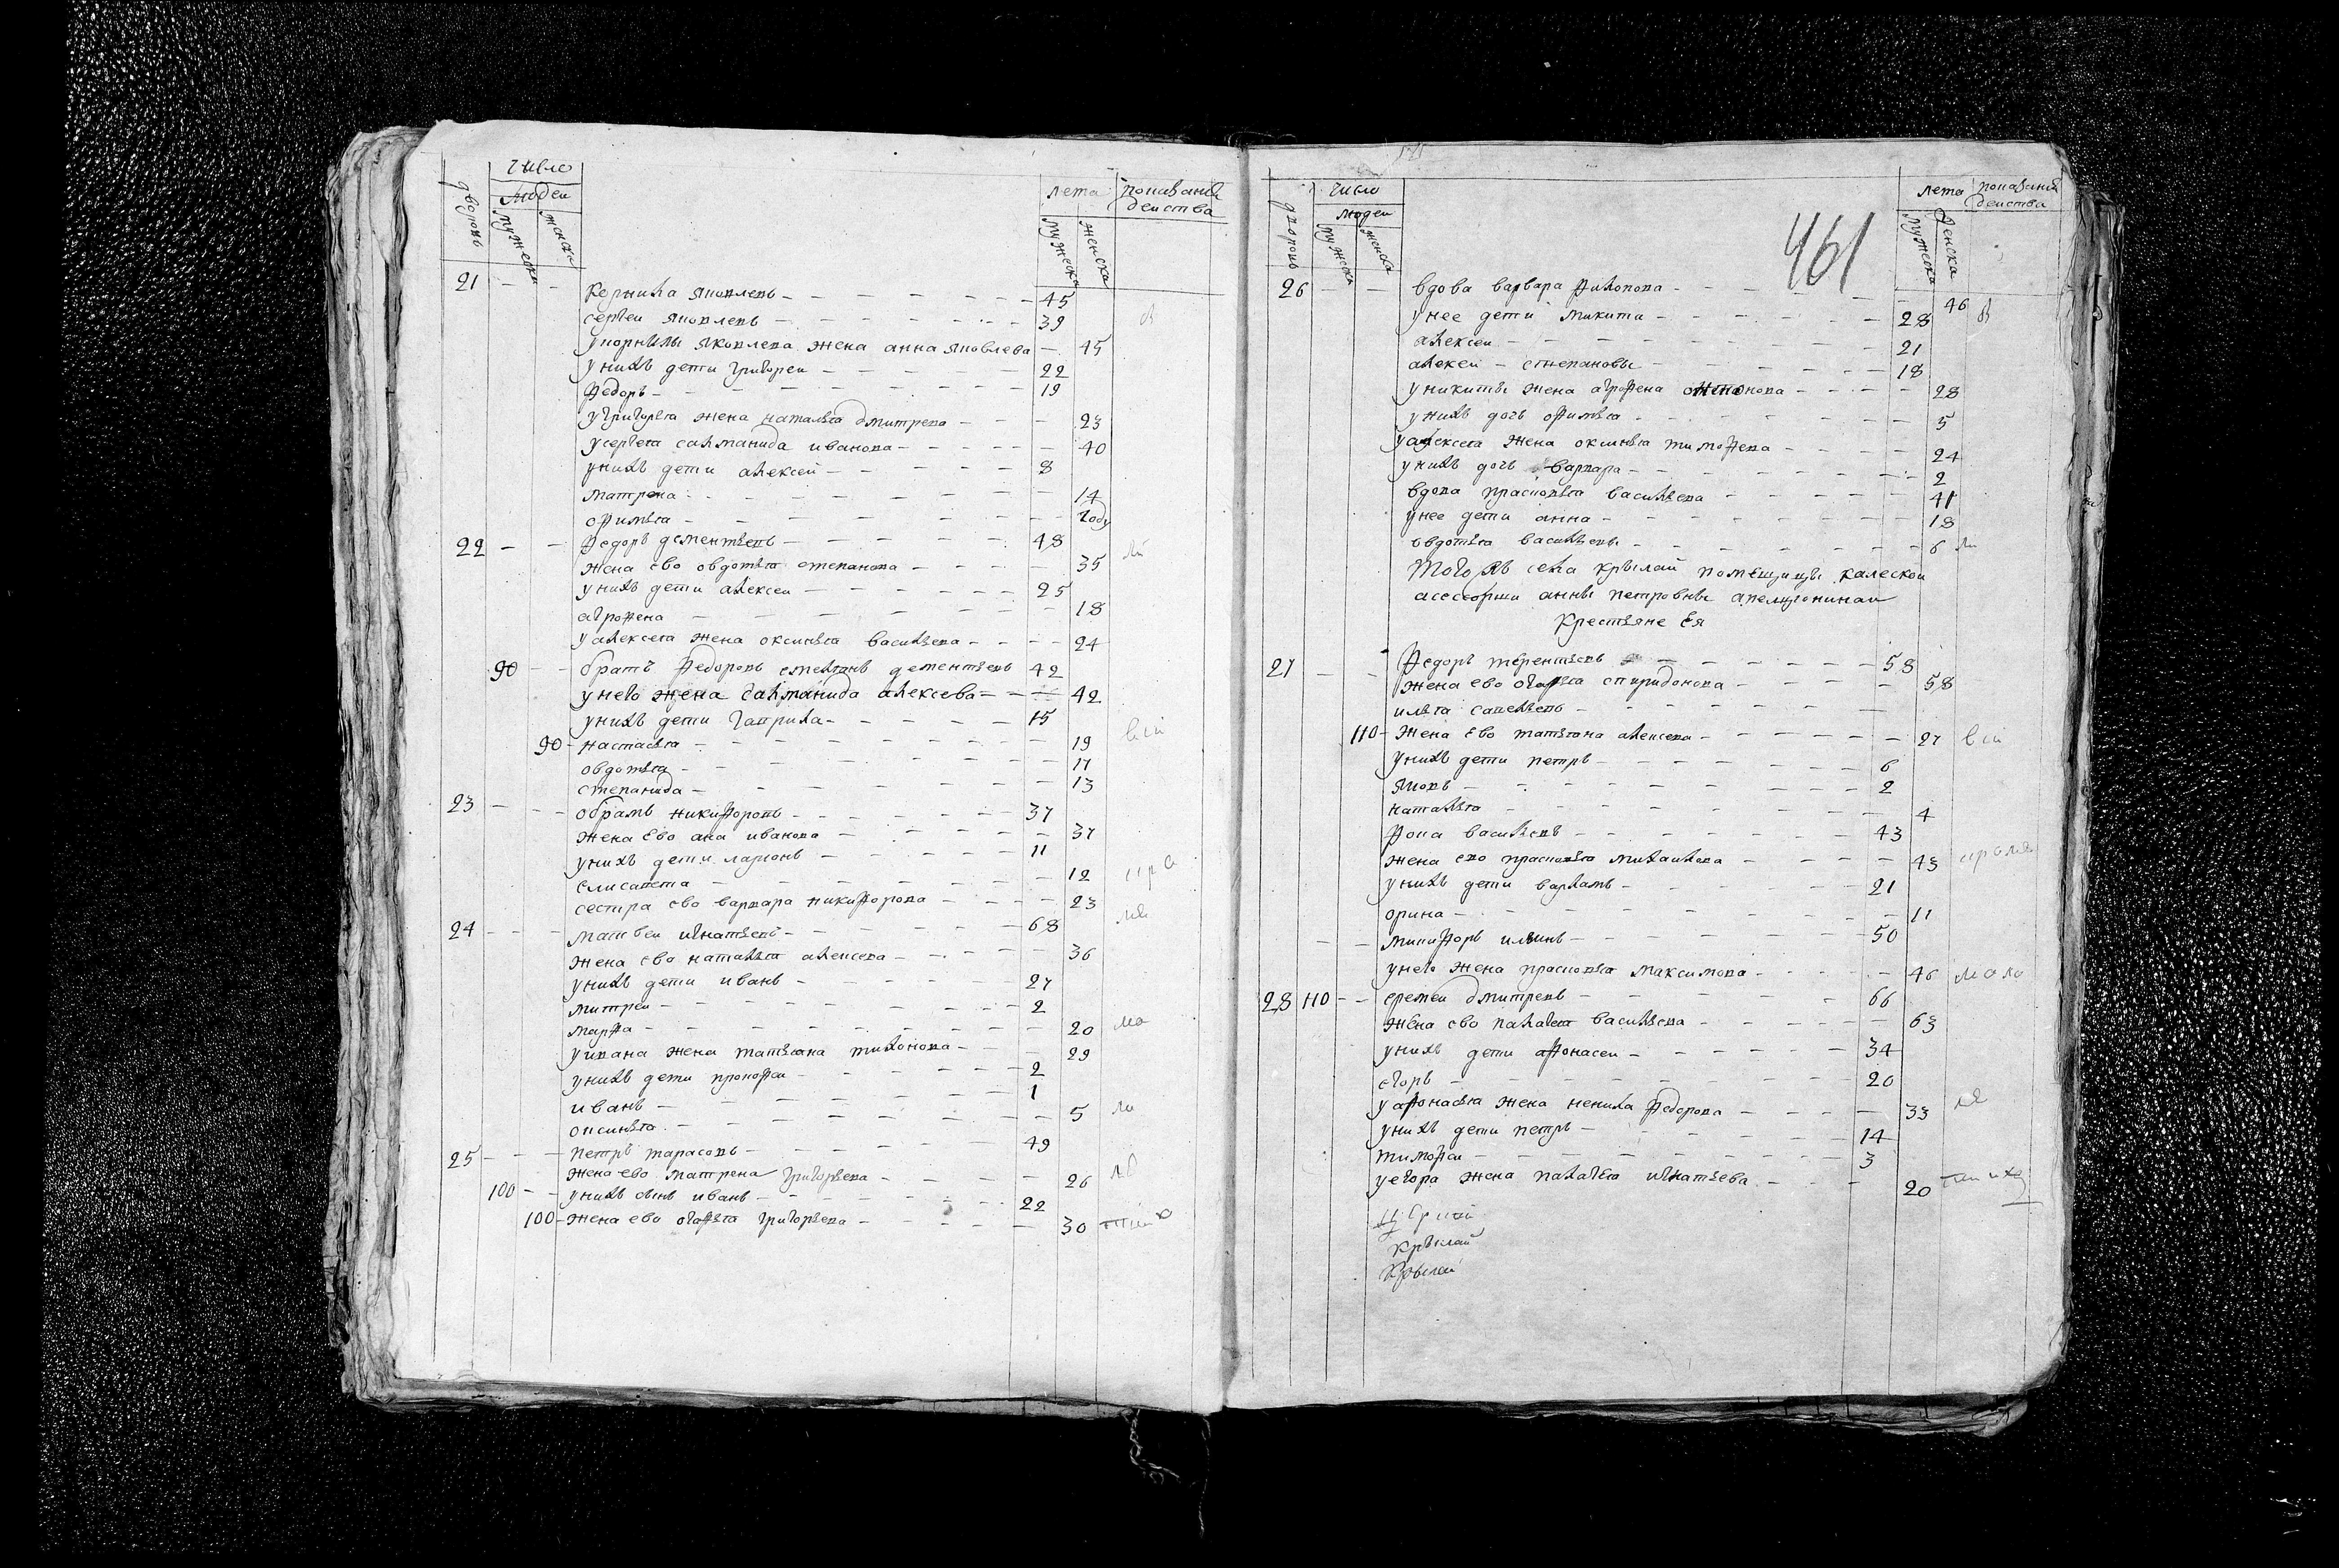 число
людеи
дворовъ
мужеска
женска
лета
мужеска
женска
показание
деиства
21 - - Корнила яковлевъ - 45
сергеи яковлевъ - 39
у корнилы яковлева жена анна яковлева - 45
у нихъ дети григореи - 22
Федоръ - 19
у григорья жена наталья дмитрева - 23
у сергея салманида иванова - 40
у нихъ дети алексеи - 8
матрена - 14
офимья - году
22 - - Федоръ дементьевъ - 48
жена ево овдотья степанова - 35
у нихъ дети алексеи - 25
агрофена - 18
у алексея жена оксинья васильева - 24
90 - братъ Федоровъ дементьевъ 42
у него жена салманида алексева - 42
у нихъ дети гаврила - 15
90 - настасья - 19
овдотья - 17
степанида - 13
23 - - обрамъ никифоровъ - 37
жена ево ана иванова - 37
у нихъ дети ларионъ - 11
елисавета - 12
сестра ево варвара никифорова - 23
24 - - матвеи игнатьевъ - 68
жена ево наталья алексева - 36
у нихъ дети иванъ - 27
митреи - 2
марфа - 20
у ивана жена татьяна тихонова - 29
у нихъ дети прокофеи - 2
иванъ - 1
оксинья - 5
25 - - петръ тарасовъ - 49
жена ево матрена григорьева - 26
100 - у нихъ сынъ иванъ - 22
100 - жена ево огафья григорьева - 30
461
число
людеи
дворовъ
мужеска
женска
лета
мужеска
женска
показание
деиства
26 - вдова варвара филопова - 46
у нее дети микита - 28
алексеи - 21
алексеи - степановы - 18
у никиты жена агрофена - 28
у нихъ дочь офимья - 5
у алексея жена оксинья тимофева - 24
у нихъ дочь варвара - 2
вдова прасковья васильева - 41
у нее дети анна - 18
овдотья васильевы - 6
Того жъ села крылаи помещицы калескои
асессорши анны петровны
Крестьяне Ея
27 - - Федоръ терентьевъ - 58
жена ево огафья спиридонова - 58
илья савельевъ -
110 - жена ево татьяна алексева - 27
у нихъ дети петръ - 6
яковъ - 2
наталья - 4
Фока васильевъ - 43
жена ево прасковья михаилова - 43
у нихъ дети варламъ - 21
орина - 11
- - микифоръ ильинъ - 50
у него жена прасковья максимова - 46
28 110 - - еремеи дмитревъ - 66
жена ево палагея васильева - 63
у нихъ дети афонасеи - 34
егоръ - 20
у афонасья жена ненила Федорова - 33
у нихъ дети петръ - 14
тимофеи - 3
у егора жена палагея игнатьева - 20
крылаи
Крылаи